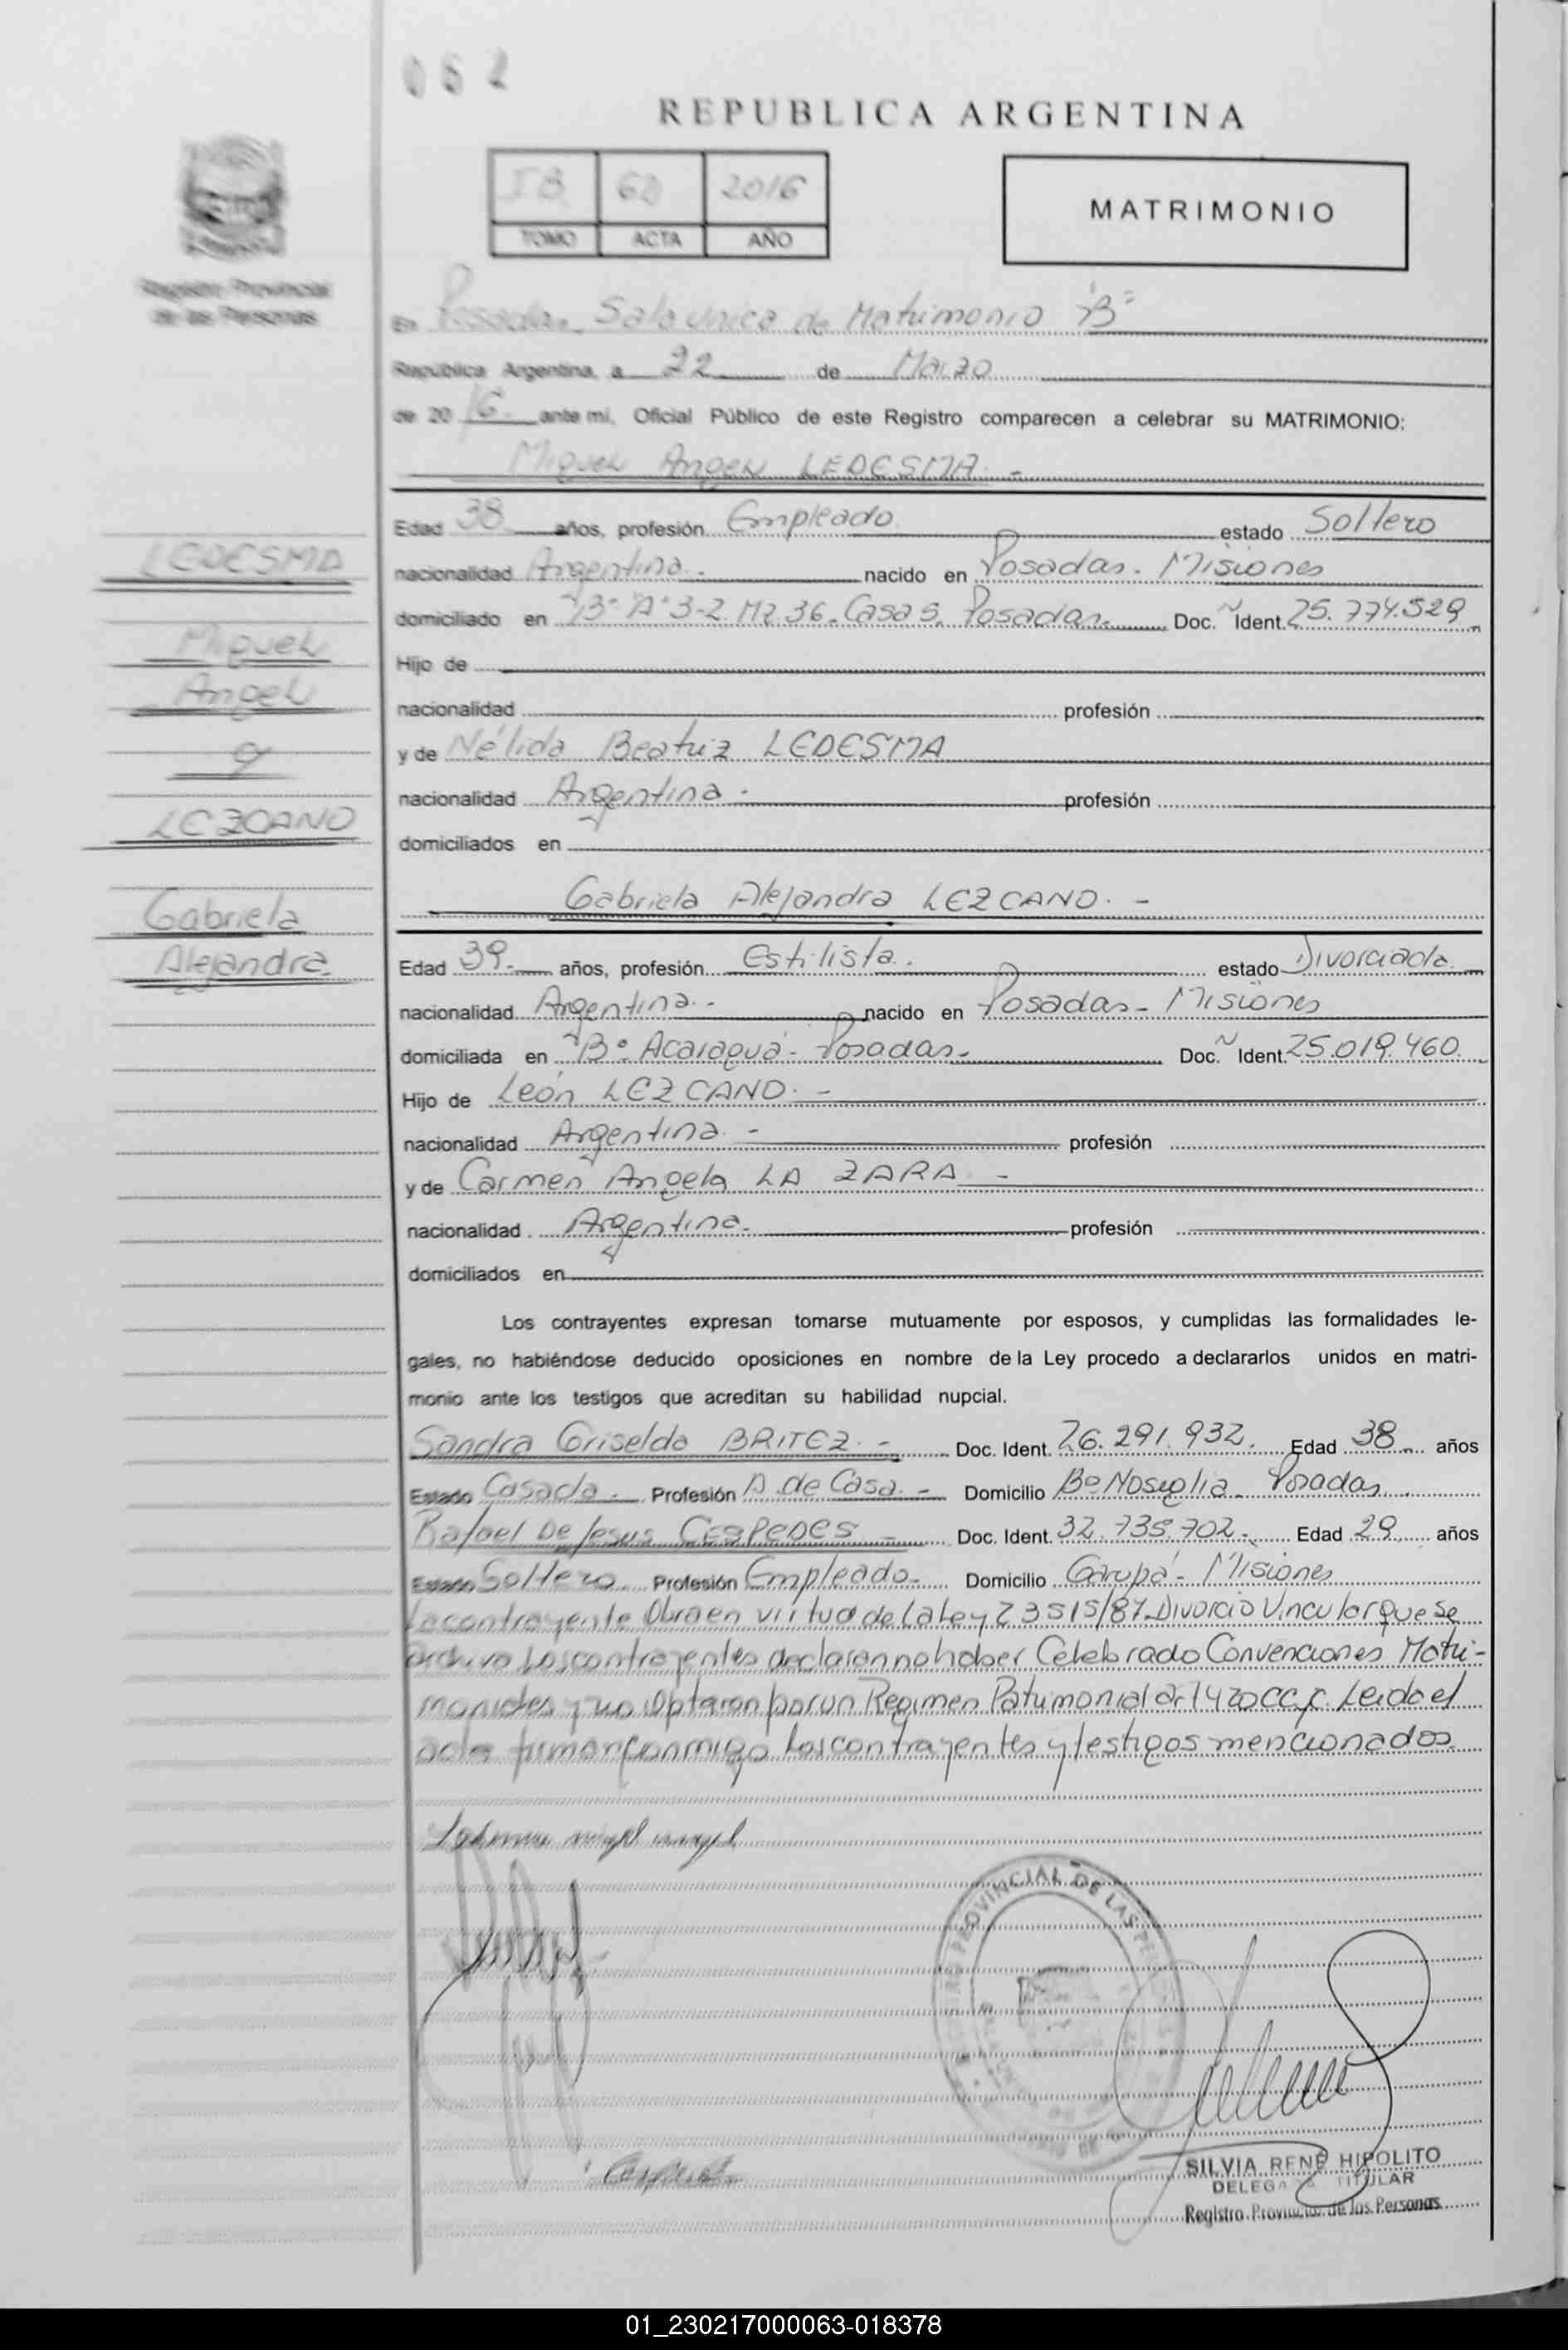 062
REPUBLICA ARGENTINA
IB 60 2016
TOMO ACTA AÑO
MATRIMONIO
Registro Provincial
de las Personas
En Posadas, Sala única de Matrimonio "B"
República Argentina, a 22 de Marzo
de 2016 ante mi, Oficial Público de este Registro comparecen a celebrar su MATRIMONIO:
Miguel Angel LEDESMA. -
Edad 38 años, profesión Empleado estado Soltero
nacionalidad Argentina. nacido en Posadas. Misiones
domiciliado en B° A° 3-2. Mz 36. Casa 5. Posadas. Doc. N Ident. 25.774.529
Hijo de
nacionalidad profesión
y de Nélida Beatriz LEDESMA
nacionalidad Argentina. profesión
domiciliados en
Gabriela Alejandra LEZCANO. -
Edad 39. años, profesión Estilista. estado Divorciada
nacionalidad Argentina. - nacido en Posadas - Misiones
domiciliada en B° Acaragua - Posadas. Doc. N Ident. 25.019.460.
Hijo de León LEZCANO. -
nacionalidad Argentina. - profesión
y de Carmen Angela LA ZARA -
nacionalidad Argentina. profesión
domiciliados en
LEDESMA
Miguel
Angel
y
LEZCANO
Gabriela
Alejandra.
Los contrayentes expresan tomarse mutuamente por esposos, y cumplidas las formalidades le-
gales, no habiéndose deducido oposiciones en nombre de la Ley procedo a declararlos unidos en matri-
monio ante los testigos que acreditan su habilidad nupcial.
Sandra Griselda BRITEZ. - Doc. Ident. 26.291.932. Edad 38 años
Estado Casada. Profesión A. de Casa. - Domicilio B° Nosiglia. Posadas.
Rafael De Jesus CESPEDES - Doc. Ident. 32.735.702. Edad 29 años
Estado Soltero. Profesión Empleado. Domicilio Garupá - Misiones
La contrayente Obra en virtud de la Ley 23515/87 Divorcio Vincular que se
archiva Los contrayentes declaran no haber Celebrado Convenciones Matri-
moniales y no Optaron por un Regimen Patrimonial Ar 1420 CC y C. Leido el
acta firman conmigo Los contrayentes y testigos mencionados.
Ledesma miguel angel
PROVINCIAL DE LAS
SILVIA RENÉ HIPOLITO
DELEGADA TITULAR
Registro Provincial de las Personas
01_230217000063-018378